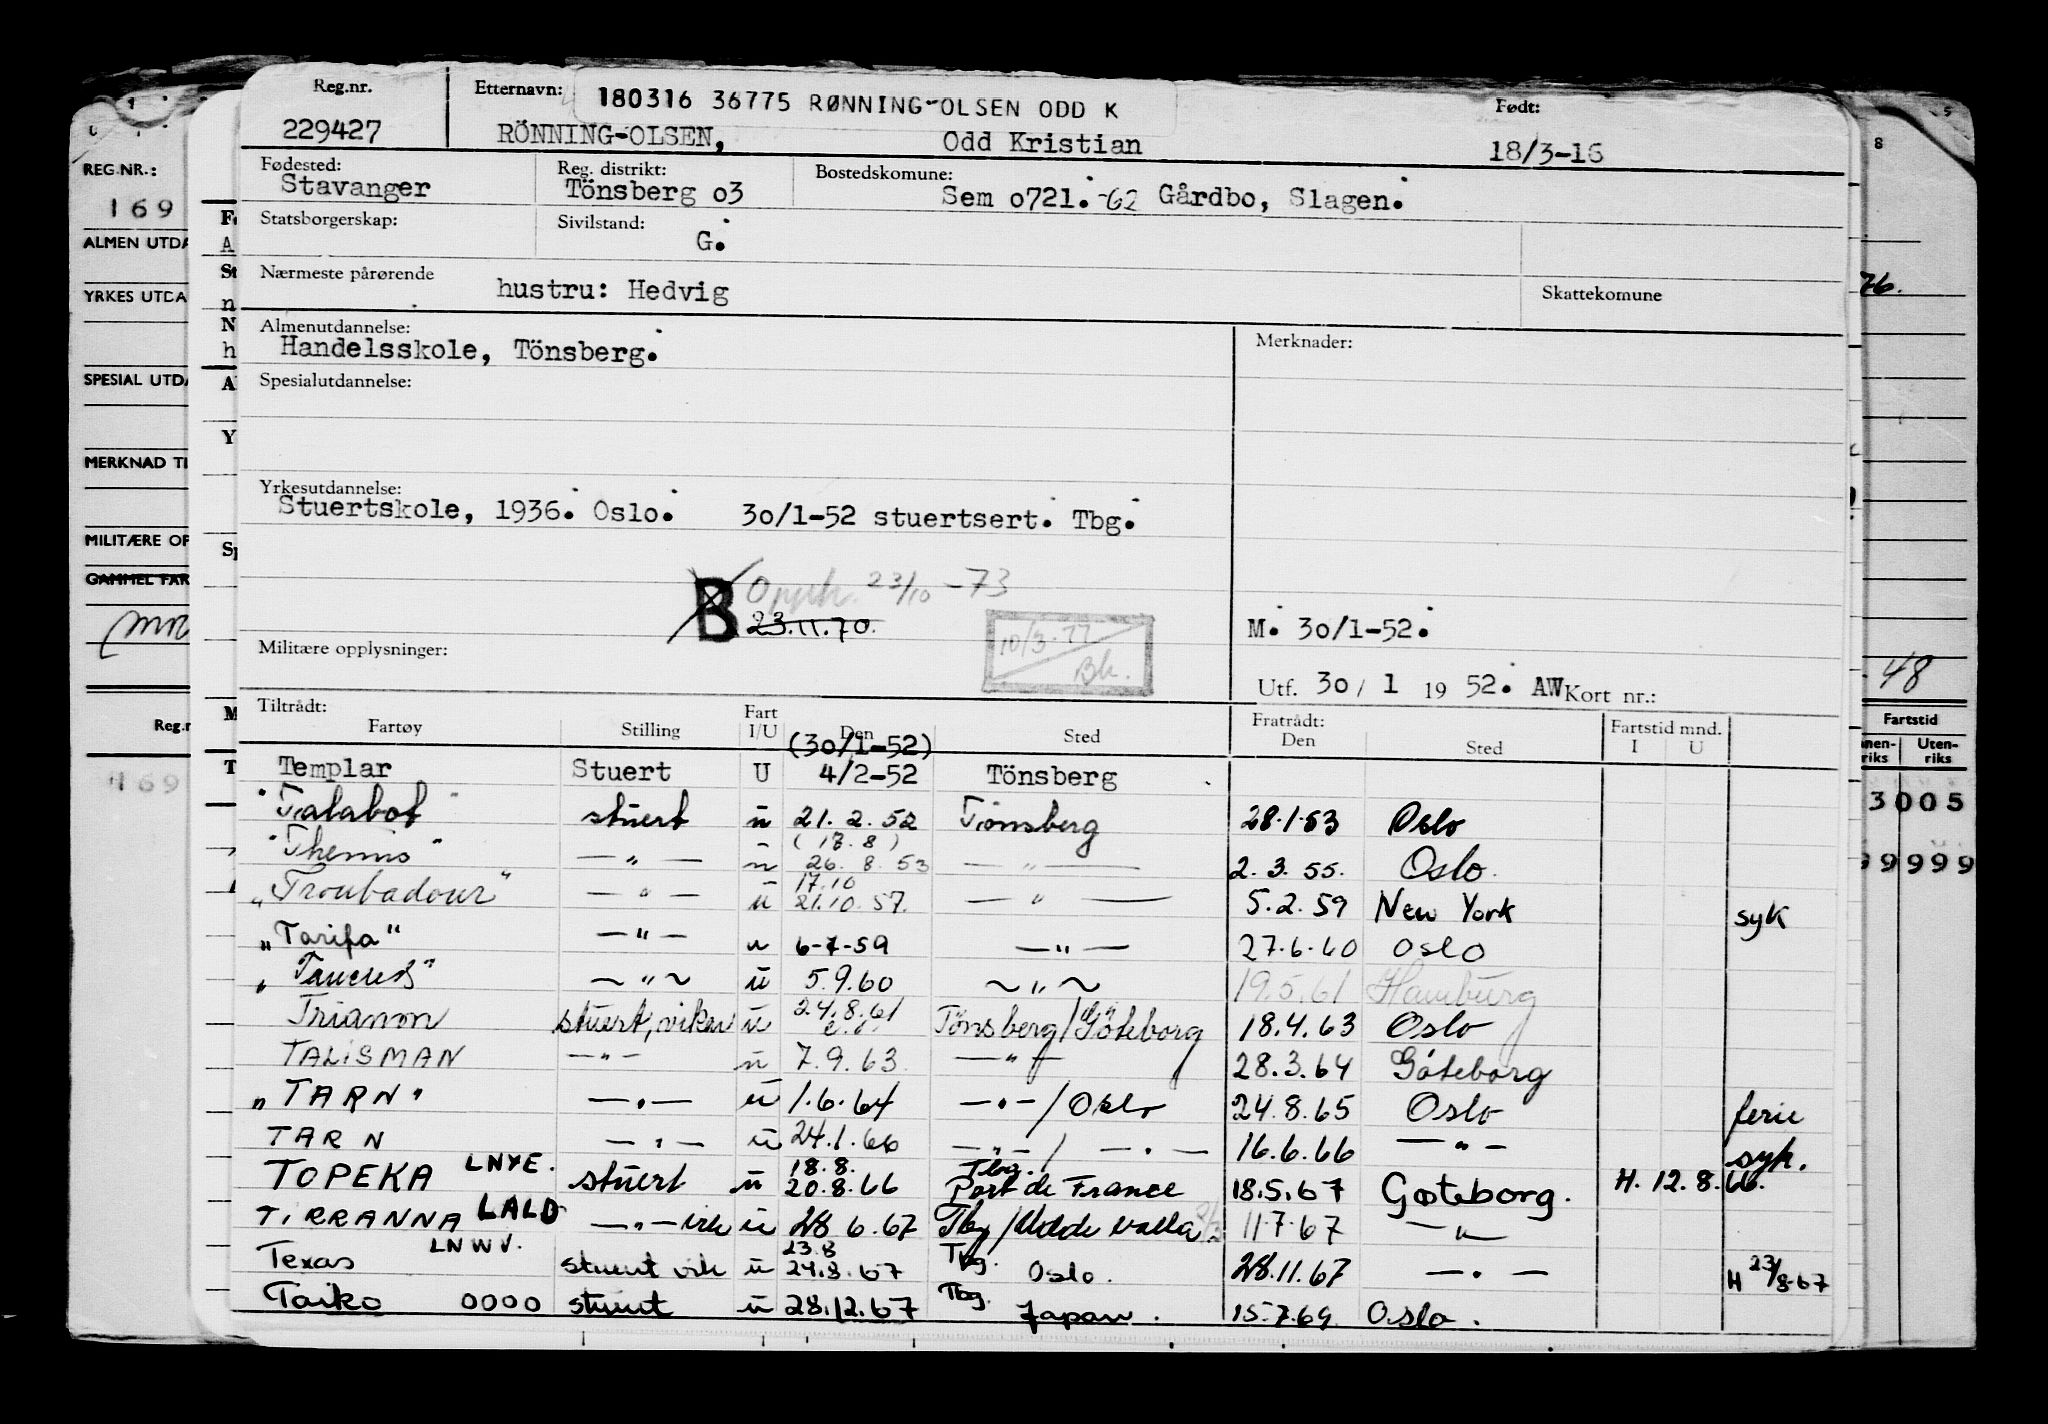 Reg.nr. Etternavn: 180316 36775 RØNNING-OLSEN ODD K Født:
229427 RÖNNING-OLSEN, Odd Kristian 18/3-16
Fødested: Reg. distrikt: Bostedskomune:
Stavanger Tönsberg o3 Sem o721. -62 Gårdbo, Slagen.
Statsborgerskap: Sivilstand:
G.
Nærmeste pårørende hustru: Hedvig Skattekomune
Almenutdannelse: Merknader:
Handelsskole, Tönsberg.
Spesialutdannelse:
Yrkesutdannelse:
Stuertskole, 1936. Oslo. 30/1-52 stuertsert. Tbg.
B Opph. 23/10-73
23.11.70.
10/3-77
Bh.
M. 30/1-52.
Militære opplysninger:
Utf. 30/ 1 19 52. AW Kort nr.:
Tiltrådt: Fratrådt:
Fartøy Stilling Fart I/U Den Sted Den Sted Fartstid mnd. I U
(30/1-52)
Templar Stuert U 4/2-52 Tönsberg
"Talabot" stuert u 21. 2. 52 Tønsberg 28.1.53 Oslo
(18.8)
"Themis" —"— u 26. 8. 53 —"— 2.3.55. Oslo.
17.10
"Troubadour" —"— u 21.10.57. —"— 5.2.59 New York syk
"Tarifa" —"— u 6-7-59 —"— 27.6.60 Oslo
"Tancred" —"— u 5.9.60 —"— 19.5.61 Hamburg
Trianon stuert, vikar u 24.8.61 Tönsberg/Göteborg 18.4.63 Oslo
TALISMAN —"— u 7.9.63 —"— 28.3.64 Göteborg
"TARN" —"— u 1.6.64 —"—/Oslo 24.8.65 Oslo ferie
TARN —"— u 24.1.66 —"—/—"— 16.6.66 —"— syk.
18.8. Tbg.
TOPEKA LNYE. stuert u 20.8.66 Port de France 18.5.67 Gøteborg. H. 12.8.66.
TIRRANNA LALD —"— vik u 28 6.67 Tbg/Uddevalla 11.7.67 —"—
LNWV. 23.8 Tbg.
Texas stuert vik u 24.8.67 Oslo. 28.11.67 —"— H 23/8-67
Taiko 0000 stuert u 28.12.67 Tbg. Japan. 15.7.69 Oslo.
REG.NR.:
169
ALMEN UTDA
YRKES UTDA
SPESIAL UTDA
MERKNAD TI
MILITÆRE OP
GAMMEL FAR
Reg.n
169
76.
48
Fartstid
nen-riks Uten-riks
3005
99999